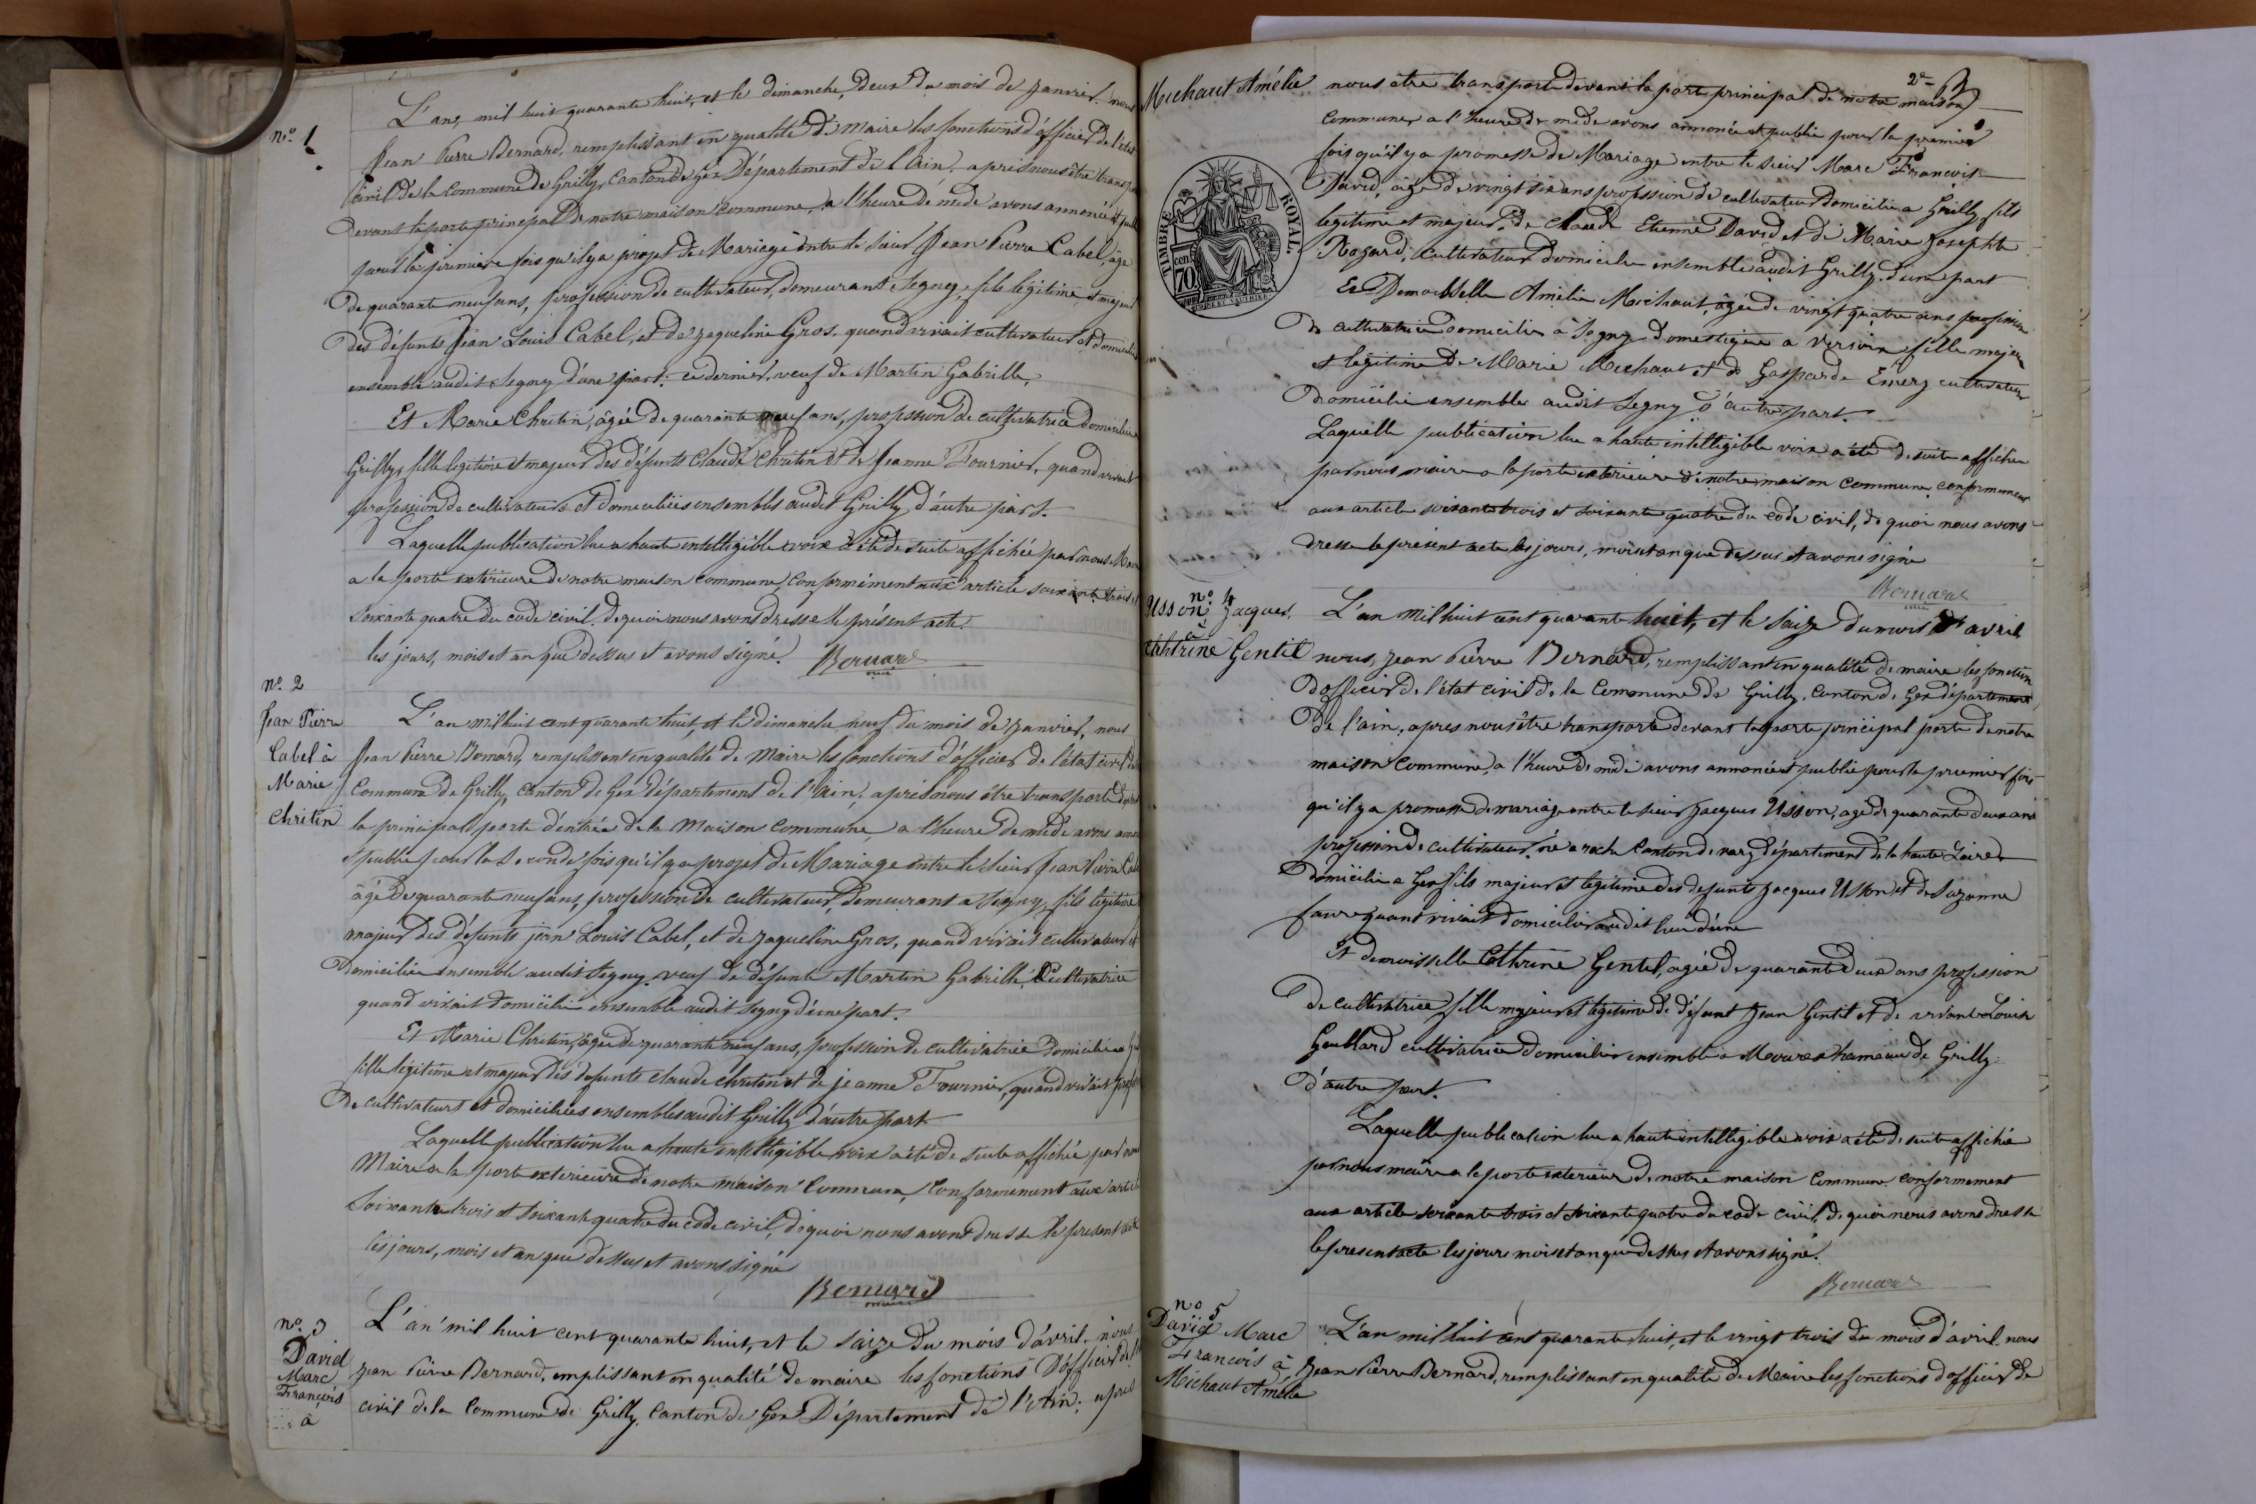 n.o 1
L'an, mil huit quarante huit, et le dimanche, deux du mois de janvier. nous
Jean Pierre Bernard, remplissant en qualité de maire les fonctions d'officier de l'état
civil de la commune de Grilly, canton de Gex Département de l'ain, apris nous être transpo
devant la porte principal de notre maison commune, a l'heure de midi avons annoncé et publ
pour la premiere fois qu'il y a projet de Mariage entre le sieur Jean Pierre Cabel, âge
de quarante neuf ans, profession de cultivateur, demeurant Segny, fils légitime et majeur
des défunts Jean Louis Cabel, et de Jaqueline Gros. quand vivait cultivateur et domicilie
ensemble audit Segny d'une part. ce dernier, veuf de Martin Gabrille,
Et Marie Chretin, âgée de quarante neuf ans, profession de cultivatrice domicilie
Grilly, fille legitime et majeur des défunts Claude Chretin et de Jeanne Fournier, quand vivait
profession de cultivateurs et domiciliées ensembles audit Grilly, d'autre part.
Laquelle publication lue a haute intelligible voix a été de suite affichée par nous Mair
a la porte extérieure de notre maison commune, conformément aux article soixante trois et
soixante quatre du code civil. de quoi nous avons dresse le présent acte.
les jours, mois et an que dessus et avons signé. Bernard
n.o 2
Jean Pierre
Cabel à
Marie
Chritin
L'an mil huit cent quarante huit, et le dimanche neuf du mois de janvier, nous
Jean Pierre Bernard, remplissant en qualité de Maire les fonctions d'officier de l'état civil de
Commune de Grilly, canton de Gex département de l'Ain, aprés nous être transporté devant
la principal porte d'entrée de la Maison commune a l'heure de midi avons annon
et publié pour la seconde fois qu'il y a projet de Mariage entre le sieur Jean Pierre Cabel
âgé de quarante neuf ans, profession de cultivateur, demeurant a Segny, fils légitime
majeur des défunts jean Louis Cabel, et de Jaqueline Gros, quand vivait cultivateur et
Domiciliée ensemble audit Segny. veuf de défunte Martin Gabrille, Cultivatrice
quand vivait domicilie ensemble audit Segny d'une part.
Et Marie Chretin, âgée de quarante neuf ans, profession de cultivatrice Domiciliée a
fille légitime et majeur des defunts claude chretin et de jeanne Fournier, quand vivait prof
De cultivateurs et domiciliées ensembles audit Grilly d'autre part
Laquelle publication lue a haute intelligible voix a été de suite affichée par nous
Maire a la porte extérieure de notre maison Commune, Conformement aux article
soixante trois et soixante quatre du code civil, de quoi nous avons dresse le present acte
les jours, mois et an que dessus et avons signé
Bernard
maire
n.o 3
David
Marc
François
à
L'an mil huit cent quarante huit, et le saize du mois d'avril. nous
Jean Pierre Bernard, emplissant en qualité de maire les fonctions D'officier de l
civil de la commune de Grilly, Canton de Gex Département de l'Ain, apres
2e
Michaut Amélie
nous être transporté devant la porte principal de notre maison
Commune a l'heure de midi avons annoncé et publié pour la premier
fois qu'il y a promesse de Mariage entre le sieur Marc François
David, âgé de vingt six ans profession de cultivateur domicilie a Grilly fils
legitime et majeur de Claude Etienne David et de Marie Josephte
Rogard, Cultivateur domicilie ensemble audit Grilly, d'une part
Et Demoiselle Amélie Michaut, âgée de vingt quatre ans profession
de cultivatrice domicilie à Segny domestique a Versoix fille majeur
et légitime de Marie Michaut et de Gasparde Emery cultivateur
Domicilié ensemble audit Segny d'autre part.
Laquelle publication lue a haute intelligible voix a été de suite affichée
par nous maire a la porte exterieure de notre maison commune conformement
aux article soixante trois et soixante quatre du code civil, de quoi nous avons
dresse le présent acte les jours, mois et an que dessus et avons signé
Bernard
TIMBRE ROYAL
70 cen
n.o 4
Usson Jacques.
à
Cathrine Gentil
L'an mil huit cent quarante huit, et le saize du mois d'avril
nous, Jean Pierre Bernard, remplissant en qualité de maire les fonction
D'officier de l'état civil de la Commune de Grilly. Canton de Gex département
De l'ain, apres nous être transporté devant la porte principal porte de notre
maison Commune, a l'heure de midi avons annoncé et publié pour la premier fois
qu'il y a promesse de mariage entre le sieur Jacques Usson, âgé de quarante deux ans
profession de cultivateur, né a roche Canton de vorey département de la haute Loire
Domicilie a Gex fils majeur et legitime des defunts Jacques Usson et de Suzanne
faure quant vivait domicilie audit lieu d'une
Et demoisselle Cathrine Gentil, agée de quarante deux ans profession
De cultivatrice, fille majeur et legitime de défunt Jean Gentil et de vivante Louise
Goullard cultivatrice domicilie ensemble a Mourex hameau de Grilly
d'autre part.
Laquelle publication lue a haute intelligible voix a été de suite affiché
par nous maire a la porte exterieur de notre maison Commune conformement
aux article soixante trois et soixante quatre du code civil, de quoi nous avons dresse
le present acte les jours mois et an que dessus et avons signé.
Bernard
n.o 5
David Marc
François à
Michaut Amélie
L'an mil huit cent quarante huit, et le vingt trois du mois d'avril nous
Jean Pierre Bernard, remplissant en qualité de Maire les fonctions d'officier de